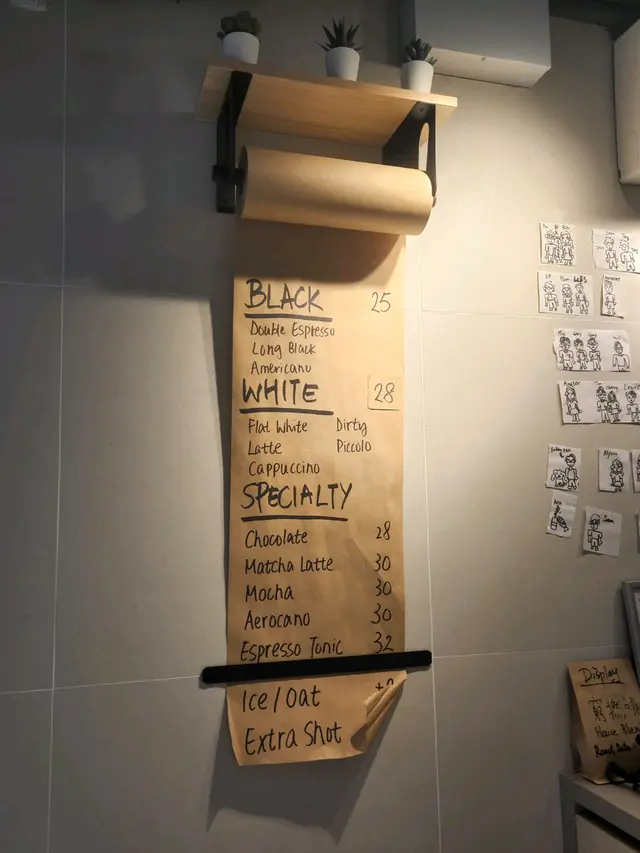 BLACK 25
Double Espresso
Long Black
Americano
WHITE 28
Flat White Dirty
Latte Piccolo
Cappuccino
SPECIALTY
Chocolate 28
Matcha Latte 30
Mocha 30
Aerocano 30
Espresso Tonic 32
Ice/Oat
Extra Shot
Display
House Blend